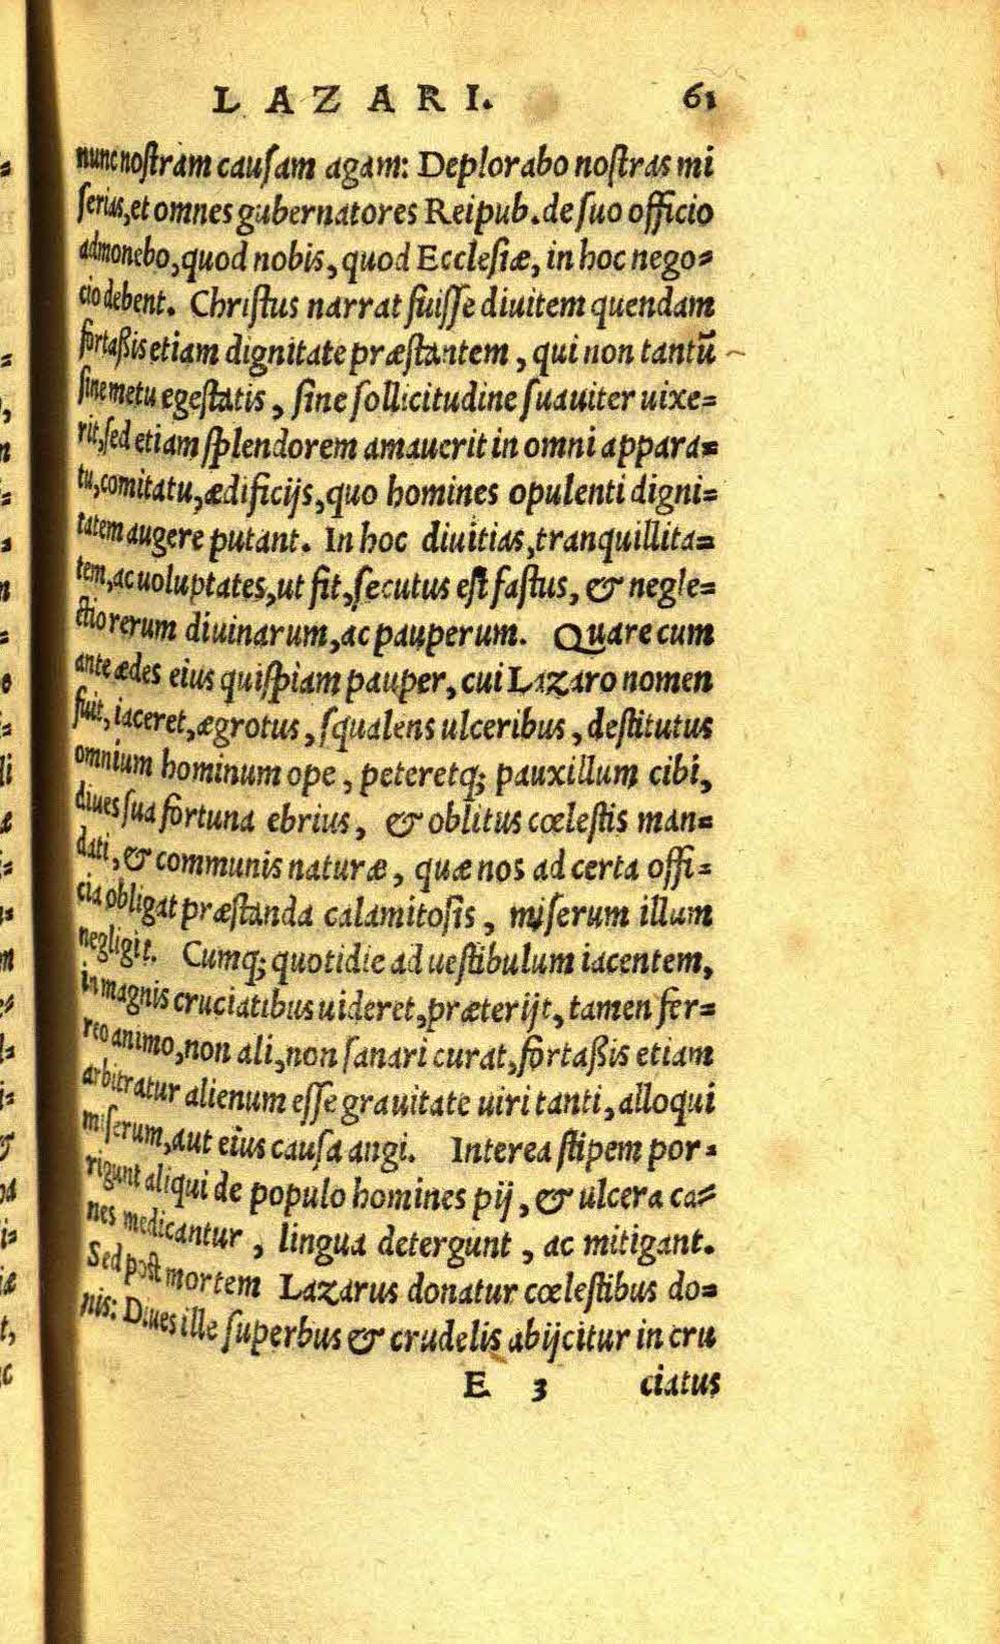 LAZARI. 61
nunc nostram causam agam: Deplorabo nostras mi
serias, et omnes gubernatores Reipub. de suo officio
admonebo, quod nobis, quod Ecclesiæ, in hoc nego=
cio debent. Christus narrat fuisse diuitem quendam
fortaßis etiam dignitate præstantem, qui non tantũ
sine metu egestatis, sine sollicitudine suauiter uixe=
rit, sed etiam splendorem amauerit in omni appara=
tu, comitatu, ædificijs, quo homines opulenti digni=
tatem augere putant. In hoc diuitias, tranquillita=
tem, ac uoluptates, ut fit, secutus est fastus, & negle=
ctio rerum diuinarum, ac pauperum. Quare cum
ante ædes eius quispiam pauper, cui Lazaro nomen
fuit, iaceret, ægrotus, squalens ulceribus, destitutus
omnium hominum ope, peteretq; pauxillum cibi,
diues sua fortuna ebrius, & oblitus cœlestis man=
dati, & communis naturæ, quæ nos ad certa offi=
cia obligat præstanda calamitosis, miserum illum
negligit. Cumq; quotidie ad uestibulum iacentem,
in magnis cruciatibus uideret, præterijt, tamen fer=
reo animo, non ali, non sanari curat, fortaßis etiam
arbitratur alienum esse grauitate uiri tanti, alloqui
miserum, aut eius causa angi. Interea stipem por=
rigunt aliqui de populo homines pij, & ulcera ca=
nes medicantur, lingua detergunt, ac mitigant.
Sed post mortem Lazarus donatur cœlestibus do=
nis: Diues ille superbus & crudelis abijcitur in cru
E 3 ciatus